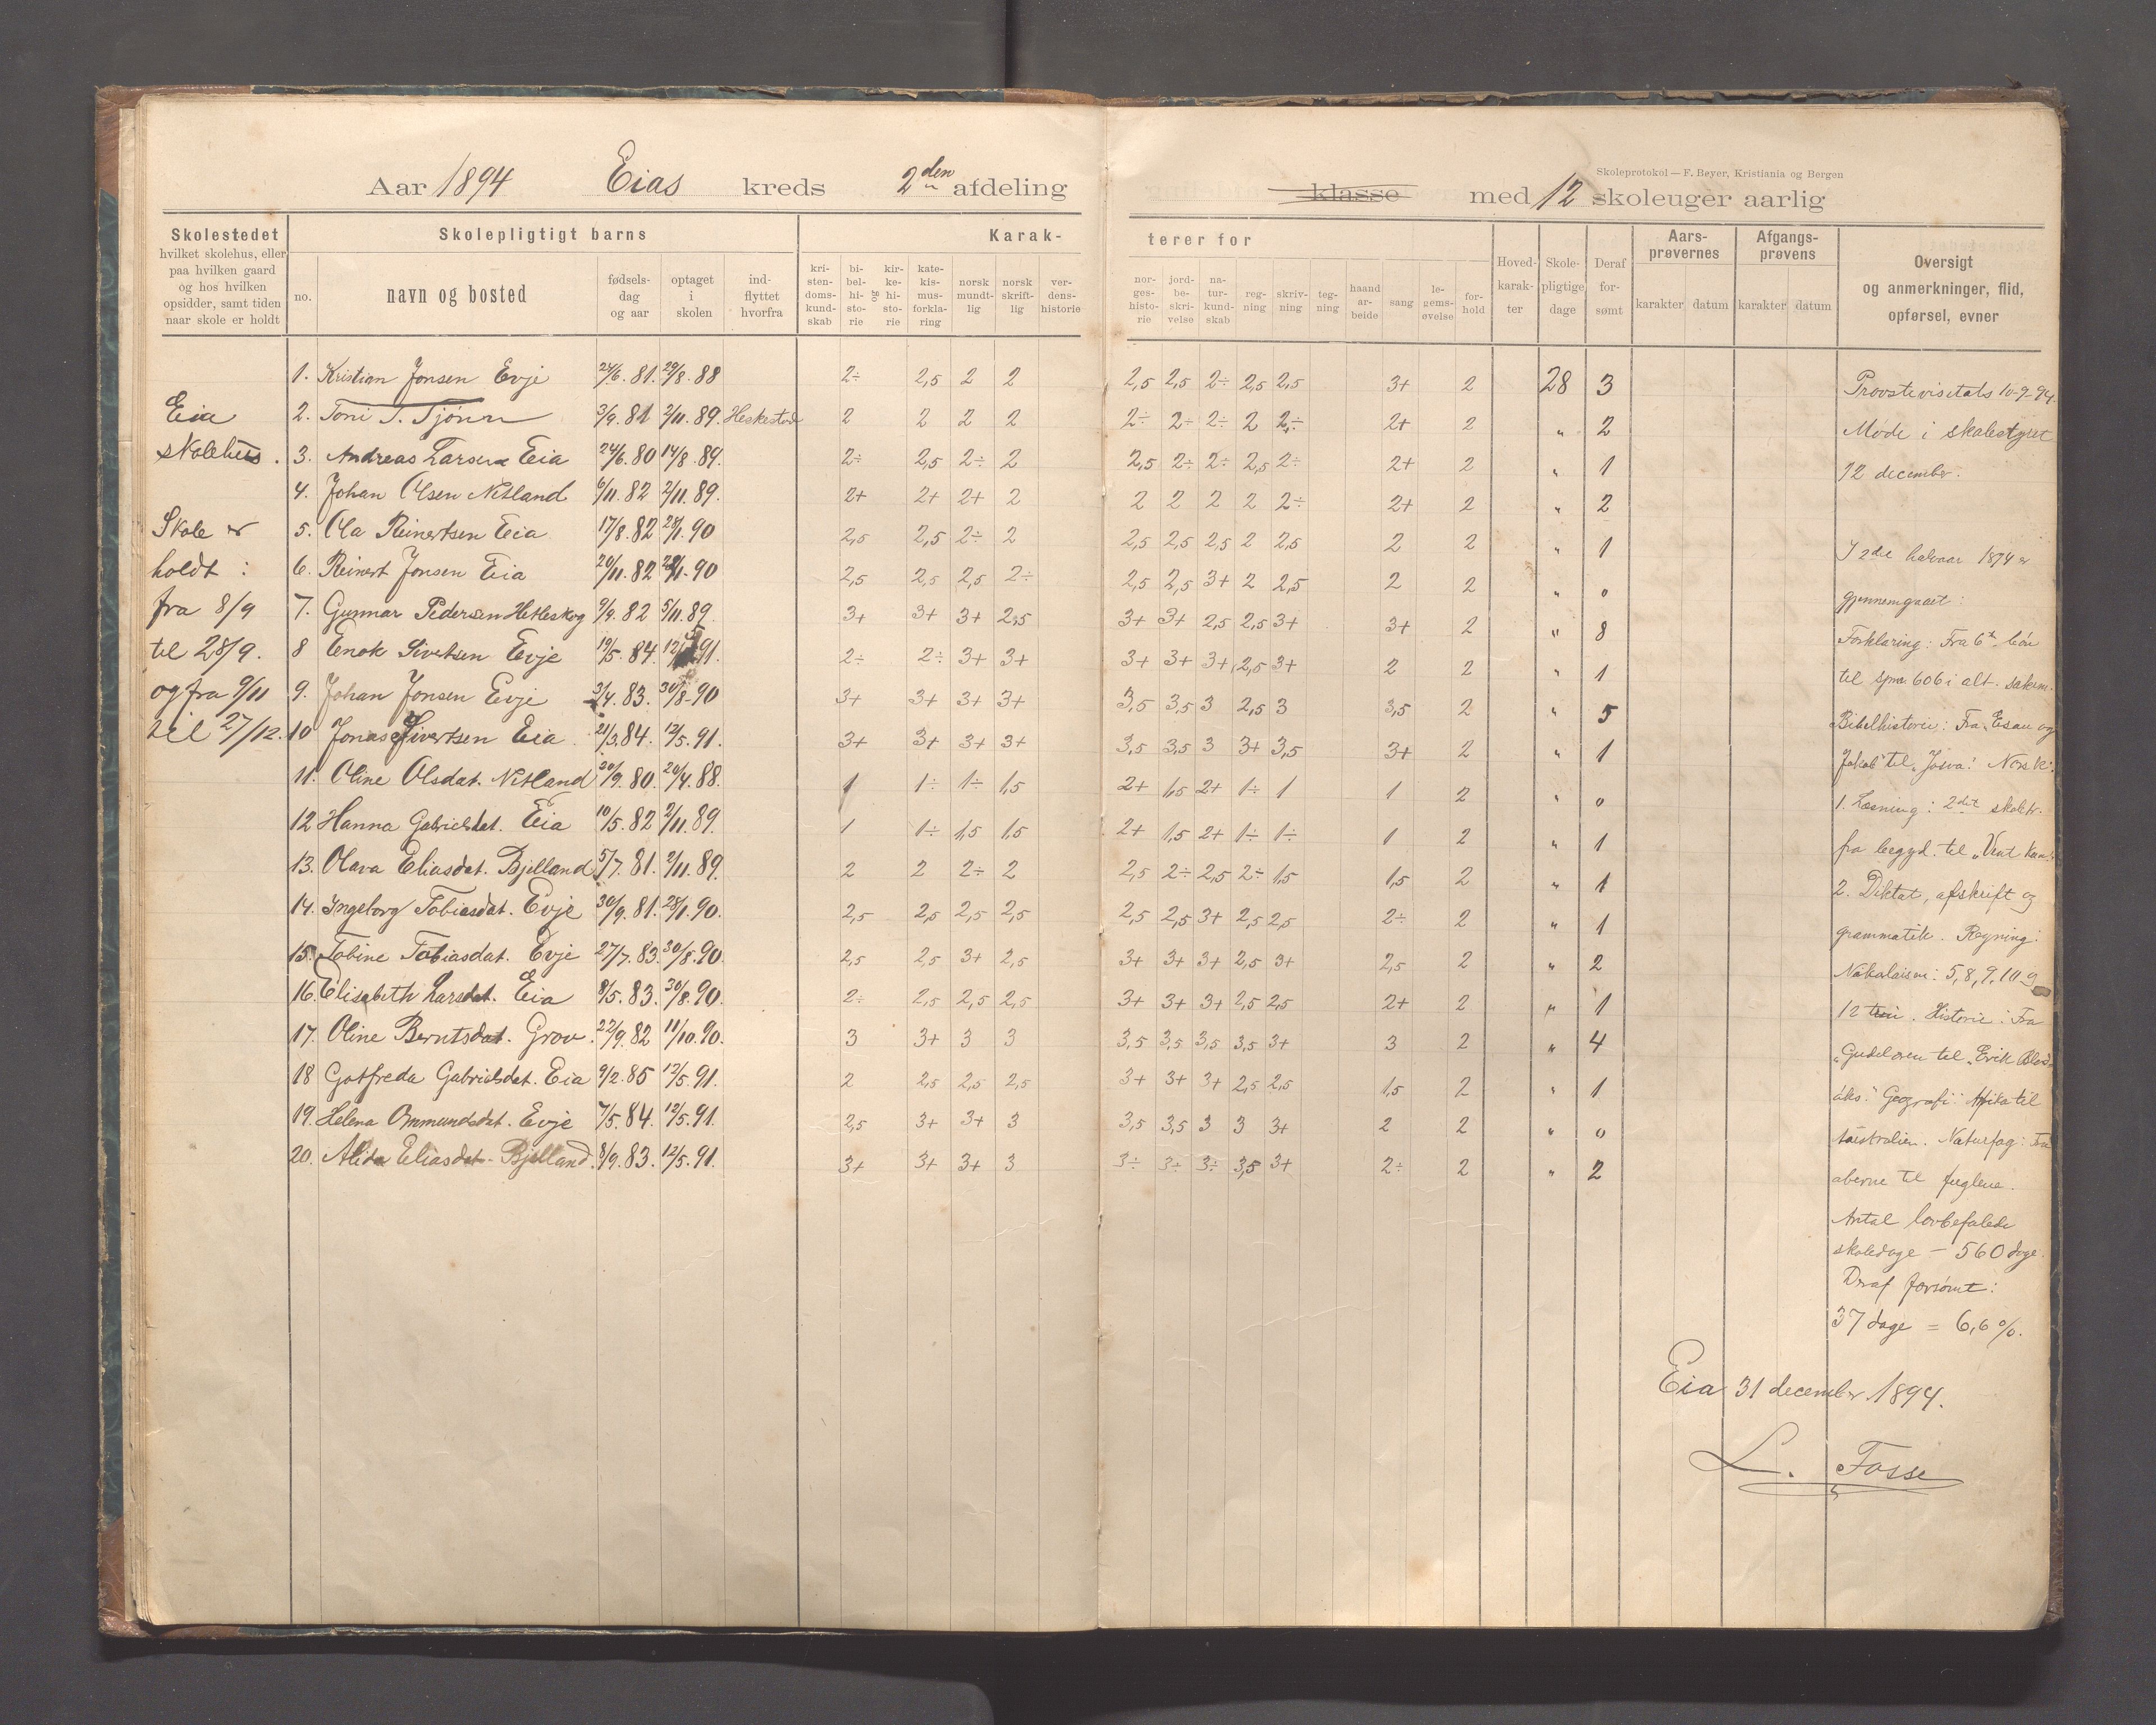 Skoleprotokol — F. Beyer, Kristiania og Bergen
Aar 1894 Eias kreds 2den afdeling klasse med 12 skoleuger aarlig
Skolestedet
hvilket skolehus, eller
paa hvilken gaard
og hos hvilken
opsidder, samt tiden
naar skole er holdt
Skolepligtigt barns
no. navn og bosted
fødsels-dag og aar
optaget i skolen
ind-flyttet hvorfra
Karakterer for
kri-sten-doms-kund-skab
bi-bel-hi-sto-rie og kir-ke-hi-sto-rie
kate-kis-mus-forkla-ring
norsk mundt-lig
norsk skrift-lig
ver-dens-historie
nor-ges-histo-rie
jord-be-skri-velse
na-tur-kund-skab
reg-ning
skriv-ning
teg-ning
haand ar-beide
sang
le-gems-øvelse
for-hold
Hoved-karak-ter
Skole-pligtige dage
Deraf for-sømt
Aars-prøvernes karakter datum
Afgangs-prøvens karakter datum
Oversigt
og anmerkninger, flid,
opførsel, evner
Eia
skolehus.
Skole er
holdt :
fra 8/9
til 28/9.
og fra 9/11
til 27/12.
1. Kristian Jonsen Evje 24/6.81. 29/8.88 2÷ 2,5 2 2 2,5 2,5 2÷ 2,5 2,5 3+ 2 28 3
2. Toni T. Tjönn 3/9.81 2/11.89. Heskestad 2 2 2 2 2÷ 2÷ 2÷ 2 2÷ 2+ 2 " 2
3. Andreas Larsen Eia 24/6.80 14/8.89. 2÷ 2,5 2÷ 2 2,5 2÷ 2÷ 2,5 2÷ 2+ 2 " 1
4. Johan Olsen Netland 6/11.82 2/11.89. 2+ 2+ 2+ 2 2 2 2 2 2÷ 2+ 2 " 2
5. Ola Reinertsen Eia 17/8.82 28/1.90 2,5 2,5 2÷ 2 2,5 2,5 2,5 2 2,5 2 2 " 1
6. Reinert Jonsen Eia 20/11.82 28/1.90 2,5 2,5 2,5 2÷ 2,5 2,5 3+ 2 2,5 2 2 " 0
7. Gunnar Pedersen Hetleskog 9/9.82 5/11.89. 3+ 3+ 3+ 2,5 3+ 3+ 2,5 2,5 3+ 3+ 2 " 8
8 Enok Sivertsen Evje 19/5.84. 12/5.91. 2÷ 2÷ 3+ 3+ 3+ 3+ 3+ 2,5 3+ 2 2 " 1
9. Johan Jonsen Evje 3/4.83. 30/8.90 3+ 3+ 3+ 3+ 3,5 3,5 3 2,5 3 3,5 2 " 5
10 Jonas Sivertsen Eia 21/3.84. 12/5.91. 3+ 3+ 3+ 3+ 3,5 3,5 3 3+ 3,5 3+ 2 " 1
11. Oline Olsdat. Netland 30/9.80. 20/4.88. 1 1÷ 1÷ 1,5 2+ 1,5 2+ 1÷ 1 1 2 " 0
12 Hanna Gabrielsdat. Eia 10/5.82 2/11.89. 1 1÷ 1,5 1,5 2+ 1,5 2+ 1÷ 1÷ 1 2 " 1
13. Olava Eliasdat. Bjelland 5/7.81. 2/11.89. 2 2 2÷ 2 2,5 2÷ 2,5 2÷ 1,5 1,5 2 " 1
14. Ingeborg Tobiasdat. Evje 30/9.81. 28/1.90. 2,5 2,5 2,5 2,5 2,5 2,5 3+ 2,5 2,5 2÷ 2 " 1
15. Tobine Tobiasdat. Evje 27/7.83. 30/8.90. 2,5 2,5 3+ 2,5 3+ 3+ 3+ 2,5 3+ 2,5 2 " 2
16. Elisabeth Larsdat. Eia 8/5.83. 30/8.90. 2÷ 2,5 2,5 2,5 3+ 3+ 3+ 2,5 2,5 2+ 2 " 1
17. Oline Berntsdat. Grov. 22/9.82 11/10.90. 3 3+ 3 3 3,5 3,5 3,5 3,5 3+ 3 2 " 4
18 Gotfreda Gabrielsdat. Eia 9/2.85 12/5.91. 2 2,5 2,5 2,5 3+ 3+ 3+ 2,5 2,5 1,5 2 " 1
19. Helena Ommundsdat. Evje 7/5.84. 12/5.91. 2,5 3+ 3+ 3 3,5 3,5 3 3 3+ 2 2 " 0
20. Alida Eliasdat. Bjelland. 8/9.83. 12/5.91. 3+ 3+ 3+ 3 3÷ 3÷ 3÷ 3,5 3+ 2÷ 2 " 2
Provstevisetats 10-9-94.
Møde i skolestyret
12 december.
I 2det halvaar 1894 er
gjennemgaaet:
Forklaring: Fra 6te bøn
til spm. 606 i alt.
Bibelhistorie: Fra „Esau og
Jakob" til „Josva". Norsk:
1. Læsning: 2det skoletr.
fra begynd. til „Vent
2. Diktat, afskrift og
grammatik. Regning:
Nikolaisen: 5,8,9,10 og
12 trin. Historie: Fra
„Gudeloven til „Erik Blod-
øks". Geografi: Afrika til
Australien. Naturfag: Fra
aberne til fuglene.
Antal lovbefalede
skoledage – 560 dage.
Deraf forsømt:
37 dage = 6,6 %.
Eia 31 december 1894.
L. Fosse